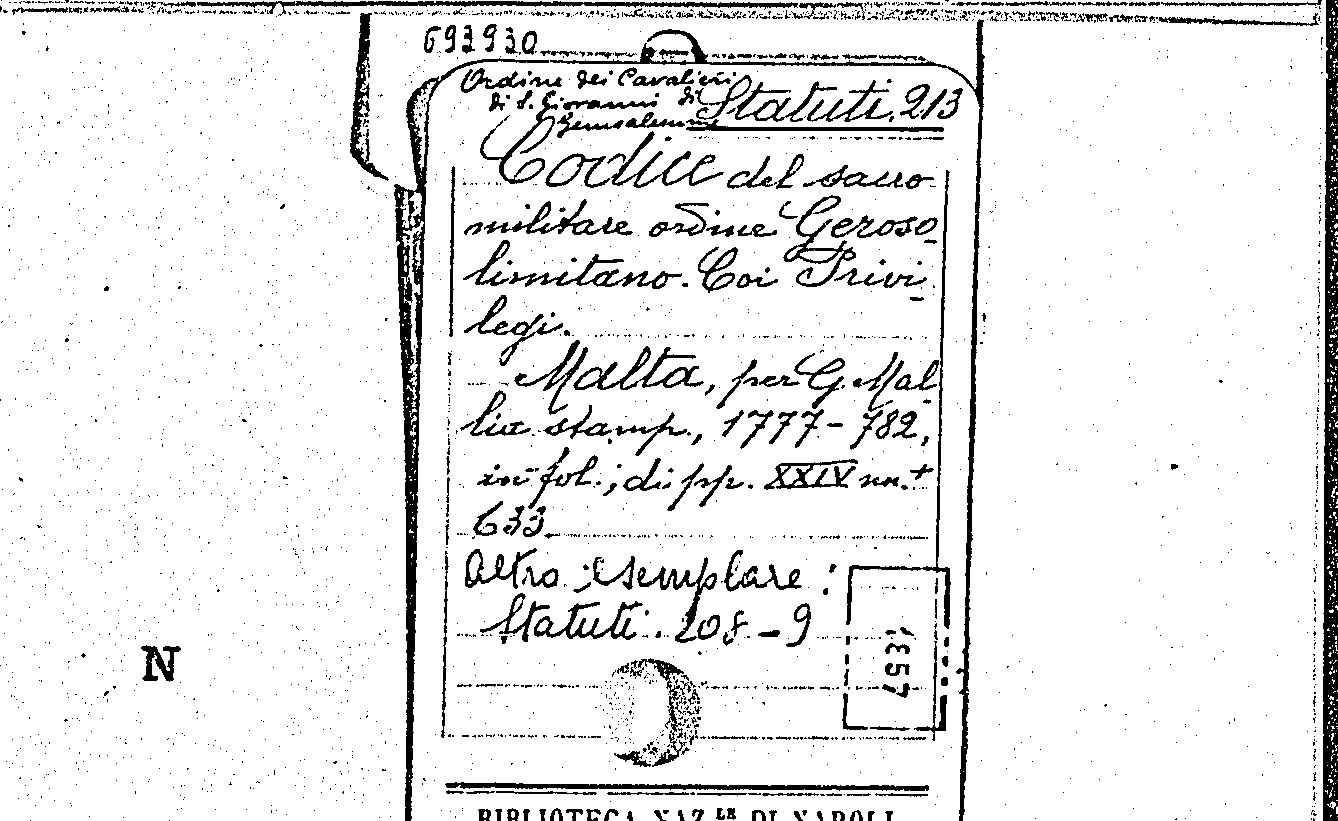 693930
Ordine dei Cavalieri
di S. Giovanni di
Gerusalemme
Statuti. 213
Codice del sacro
militare ordine Geroso_
limitano. Coi Privi_
legi.
Malta, per G. Mal_
lia stamp., 1777-782,
in fol.; di pp. XXIV nn. +
633
Altro esemplare :
Statuti. 208-9
1857
N
BIBLIOTECA NAZ.LE DI NAPOLI